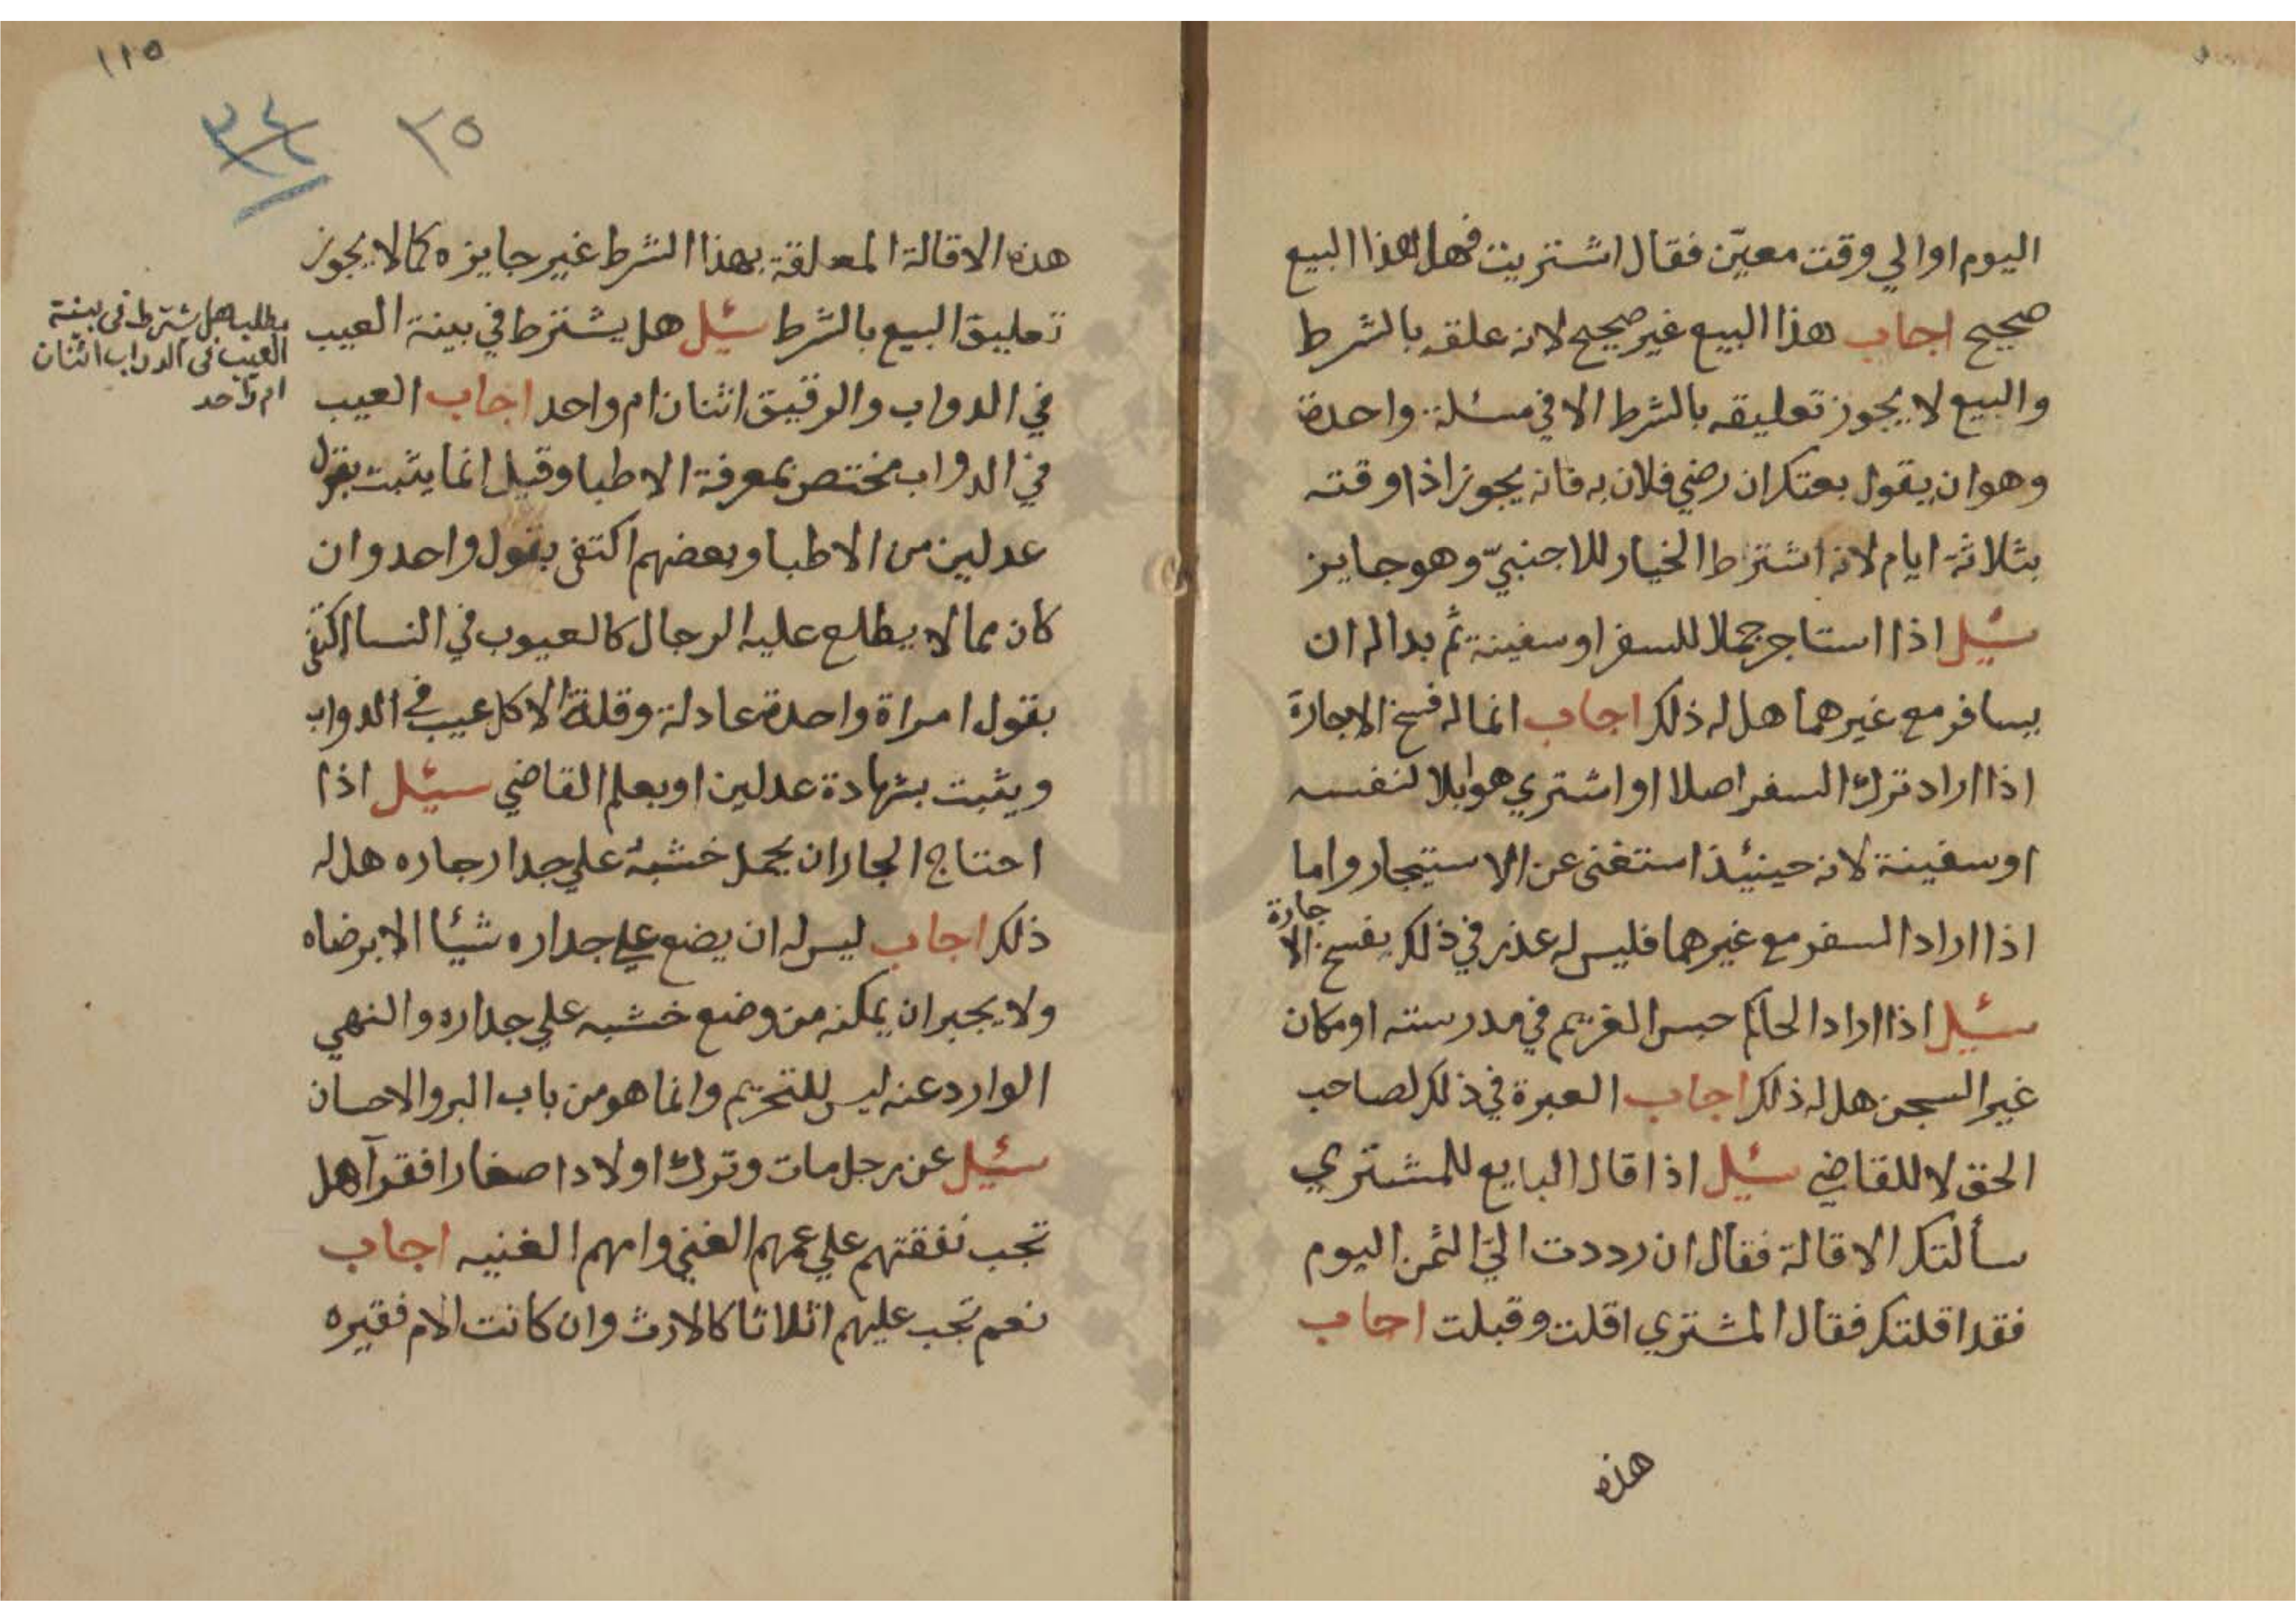 اليوم او الي وقت معيّن فقال اشتريت فهل هذا البيع
صحيح اجاب هذا البيع غير صحيح لانه علقه بالشرط
والبيع لا يجوز تعليقه بالشرط الا في مسئلة واحدة
وهو ان يقول بعتك ان رضي فلان به فانه يجوز اذا وقته
بثلاثة ايام لانه اشتراط الخيار للاجنبيّ وهو جايز
سئل اذا استاجر جملا للسفر او سفينة ثم بدا له ان
يسافر مع غيرهما هل له ذلك اجاب انما له فسخ الاجارة
اذا اراد ترك السفر اصلا او اشتري هو ابلا لنفسه
او سفينة لانه حينئذ استغنى عن الاستيجار واما
اذا اراد السفر مع غيرهما فليس له عذر في ذلك يفسخ الاجارة
سئل اذا اراد الحاكم حبس الغريم في مدرسته او مكان
غير السجن هل له ذلك اجاب العبرة في ذلك لصاحب
الحق لا للقاضي سئل اذا قال البايع للمشتري
سألتك الاقالة فقال ان رددت اليّ الثمن اليوم
فقد اقلتك فقال المشتري اقلت وقبلت اجاب
هذه
١١٥
٣٥
هذه الاقالة المعلقة بهذا الشرط غير جايزه كما لا يجوز
تعليق البيع بالشرط سئل هل يشترط في بينة العيب
في الدواب والرقيق اثنان ام واحد اجاب العيب
في الدواب مختص بمعرفة الاطبا وقيل انما يثبت بقول
عدلين من الاطبا وبعضهم اكتفى بقول واحد وان
كان مما لا يطلع عليه الرجال كالعيوب في النسا اكتفى
بقول امراة واحدة عادلة وقلة الاكل عيب في الدواب
ويثبت بشهادة عدلين او بعلم القاضي سئل اذا
احتاج الجار ان يحمل خشبة علي جدار جاره هل له
ذلك اجاب ليس له ان يضع علي جداره شيئا الا برضاه
ولا يجبر ان يمكنه من وضع خشبه علي جداره والنهي
الوارد عنه ليس للتحريم وانما هو من باب البر والاحسان
سئل عن رجل مات وترك اولادا صغارا فقرآ هل
تجب نفقتهم علي عمهم الغني وامهم الغنيه اجاب
نعم تجب عليهم اثلاثا كالارث وان كانت الام فقيره
مطلب هل يشترط في بينة
العيب في الدواب اثنان
ام واحد